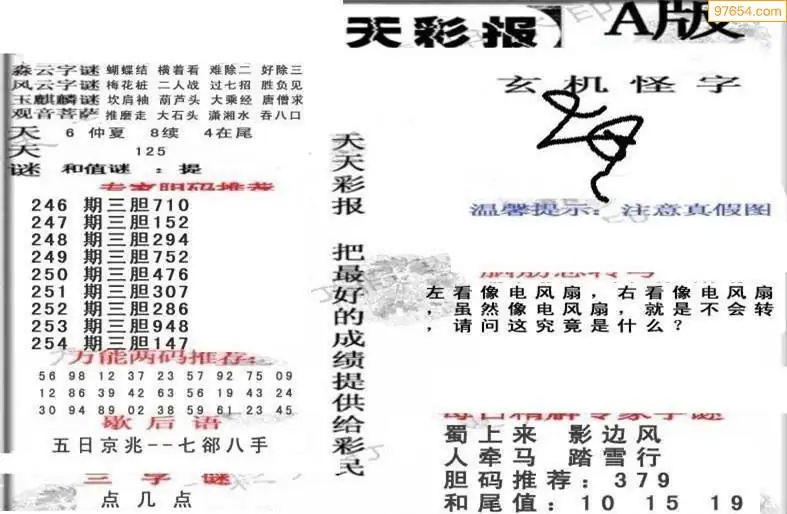 97654.com
天彩报】 A版
森云字谜 蝴蝶结 横着看 难除二 好除三
风云字谜 梅花桩 二人战 过七招 胜负见
玉麒麟谜 坎肩袖 葫芦头 大乘经 唐僧求
观音菩萨 推磨走 大石头 潇湘水 吞八口
天 6 仲夏 8续 4在尾
天 125
谜 和值谜 : 提
专家胆码推荐
246 期三胆710
247 期三胆152
248 期三胆294
249 期三胆752
250 期三胆476
251 期三胆307
252 期三胆286
253 期三胆948
254 期三胆147
万能两码推荐:
56 98 12 37 23 57 92 75 09
12 86 39 42 63 56 19 43 24
30 94 89 02 38 59 61 23 45
歇后语
五日京兆--七郤八手
三字谜
点几点
天天彩报 把最好的成绩提供给彩民
玄机怪字
温馨提示: 注意真假图
脑筋急转弯
左看像电风扇，右看像电风扇
，虽然像电风扇，就是不会转
，请问这究竟是什么？
每日精解专家字谜
蜀上来 影边风
人牵马 踏雪行
胆码推荐: 379
和尾值: 10 15 19